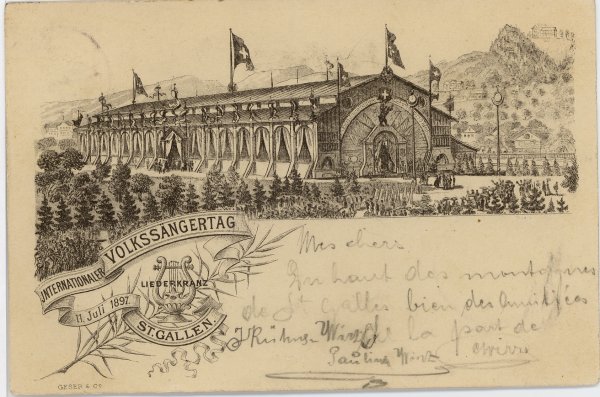 INTERNATIONALER VOLKSSÄNGERTAG
LIEDERKRANZ
11. Juli 1897.
ST. GALLEN.
GESER & Co
Mes chers
Du haut des montagnes
de St Galles bien des Amitiées
de la part de
Pauline Wirz